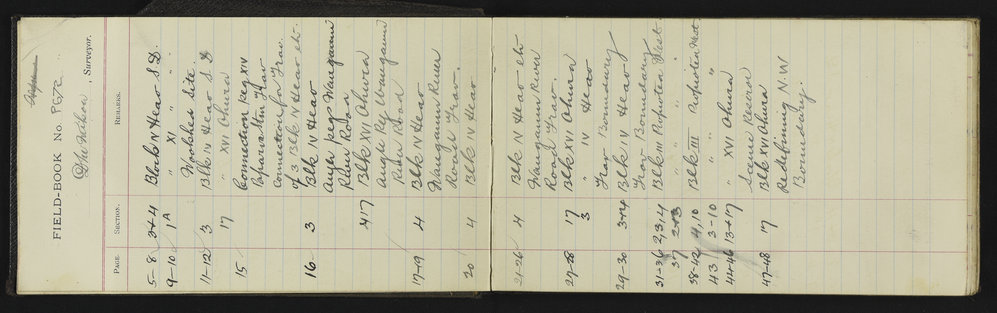 FIELD-BOOK No. P67a
, Surveyor.
PAGE. SECTION. REMARKS.
5-8 3+4 Block IV Heao S D.
9-10 1A " XI " "
Woolshed Site
11-12 3 Blk IV Heao S D
17 " XVI Ohura
15 Connection Peg XIV
Connection for Trav.
of 3 Blk IV Heao etc
16 3 Blk IV Heao
Angle pegs Wanganui
River Road
17 Blk XVI Ohura
Angle Peg Wanganui
River Road
17-19 4 Blk IV Heao
Wanganui River
Road Trav.
20 4 Blk IV Heao
21-26 4 Blk IV Heao etc
Wanganui River
Road Trav.
27-28 17 Blk XVI Ohura
3 " IV Heao
Trav Boundary
29-30 3+4 Blk IV Heao
Trav Boundary
31-36 2,3,4 Blk III Rarotea West
37 2+3 " " " "
38-42 4,10 Blk III
43 3-10 " "
44-46 13+17 " XVI Ohura
Scenic Reserve
47-48 17 Blk XVI Ohura
Redefining N.W
Boundary.